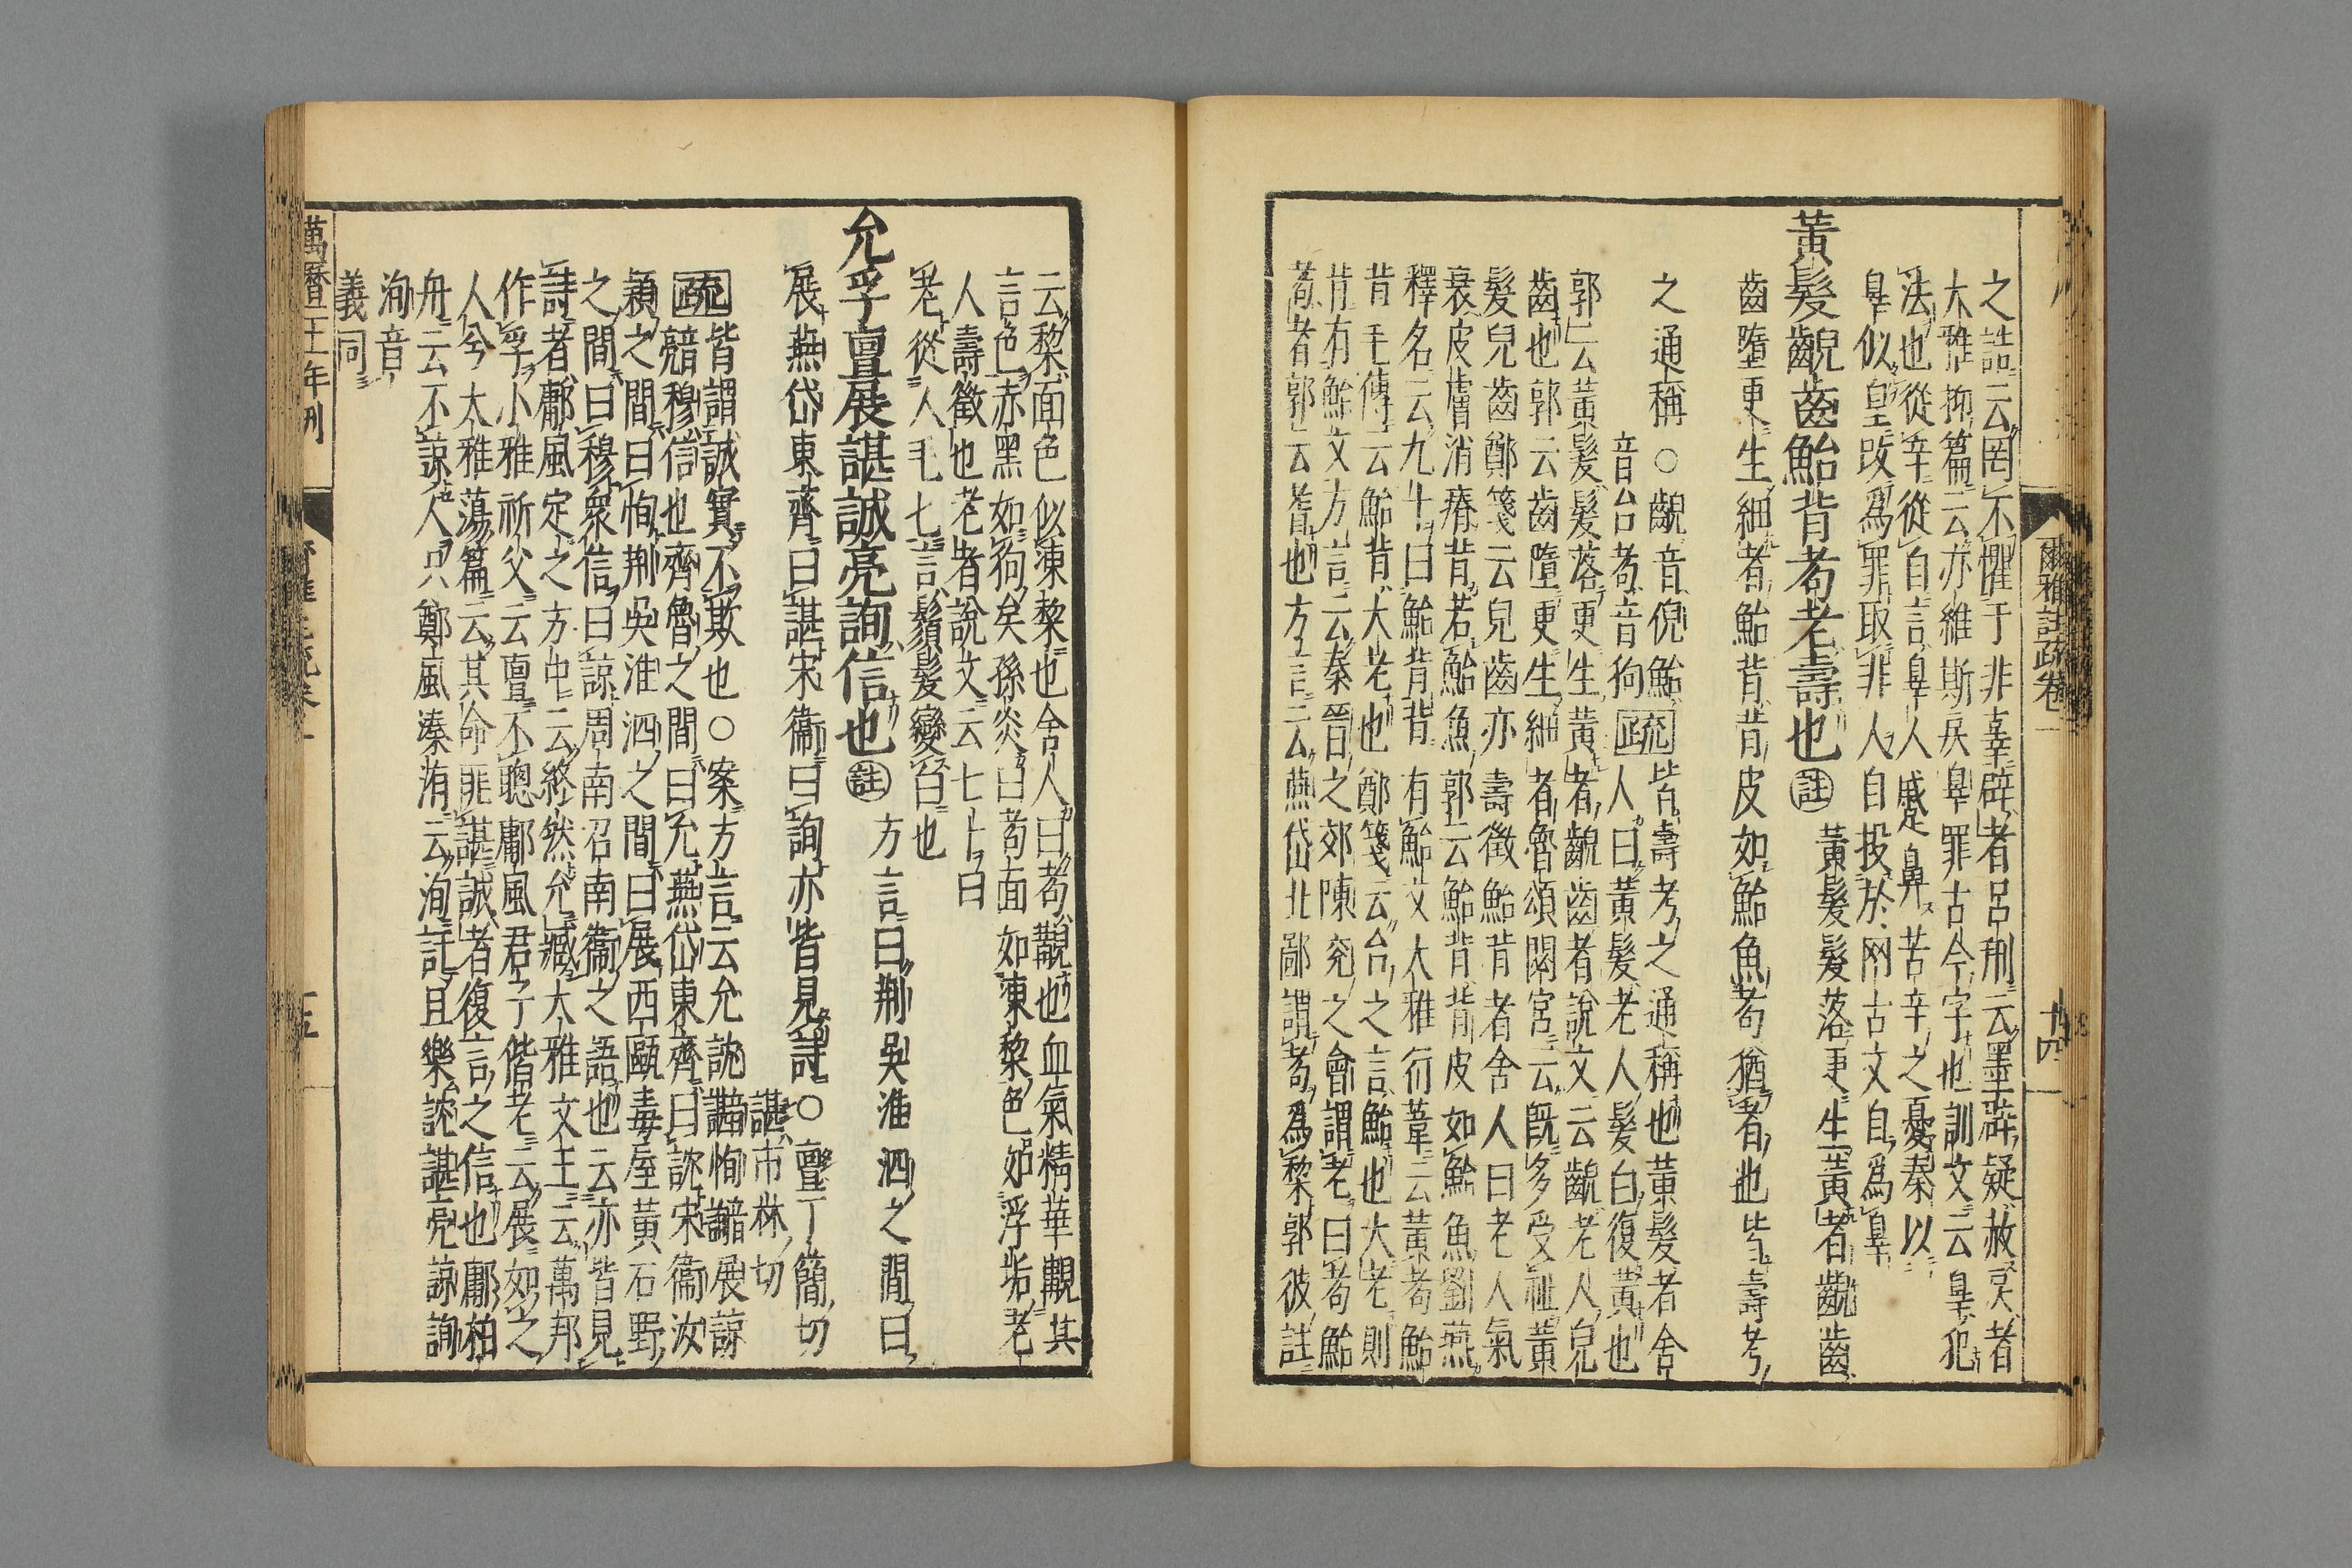 爾雅註疏卷一
十四
之誥云罔不懼于非辜辟者呂刑云墨辟疑赦戾者
大雅抑篇云亦維斯戾辠罪古今字也訓文云辠犯
法也從辛從自言辠人蹙鼻苦辛之憂秦以
辠似皇改爲罪取非人自投於网古文自爲辠
黃髮齯齒鮐背耇老壽也註黃髮髮落更生黃者齯齒
齒墮更生細者鮐背背皮如鮐魚耇猶耆也皆壽考
之通稱○齯音倪鮐
音台耇音狗
疏皆壽考之通稱也黃髮者舍
人曰黃髮老人髮白復黃也
郭云黃髮髮落更生黃者齯齒者說文云齯老人兒
齒也郭云齒墮更生細者魯頌閟宮云既多受祉黃
髮兒齒鄭箋云兒齒亦壽徵鮐背者舍人曰老人氣
衰皮膚消瘠背若鮐魚郭云鮐背背皮如鮐魚劉熙
釋名云九十曰鮐背背有鮐文大雅行葦云黃耇鮐
背毛傳云鮐背大老也鄭箋云台之言鮐也大老則
背有鮐文方言云秦晉之郊陳兗之會謂老曰耇鮐
耇者郭云耆也方言云燕岱北鄙謂耇爲黎郭彼註
云黎面色似凍黎也舍人曰耇覯也血氣精華覯其
言色赤黑如狗矣孫炎曰耇面如凍黎色如浮垢老
人壽徵也老者說文云七十曰
老從人毛匕言鬚髮變白也
允孚亶展諶誠亮詢信也註方言曰荆吳淮泗之間曰
展燕岱東齊曰諶宋衞曰詢亦皆見詩○亶丁簡切
諶市林切
疏皆謂誠實不欺也○案方言云允訦諶恂諒展諒
穆信也齊魯之間曰允燕岱東齊曰訦宋衞汝
潁之間曰恂荆吳淮泗之間曰展西甌毒屋黃石野
之間曰穆衆信曰諒周南召南衞之語也云亦皆見
詩者鄘風定之方中云終然允臧大雅文王云萬邦
作孚小雅祈父云亶不聰鄘風君子偕老云展如之
人兮大雅蕩篇云其命匪諶誠者復言之信也鄘柏
舟云不諒人只鄭風溱洧云洵訏且樂訦諶亮諒詢
洵音
義同
萬曆二十一年刊
爾雅註疏卷一
十五